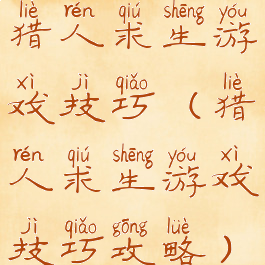 liè rén qiú shēng yóu
猎人求生游
xì jì qiǎo liè
戏技巧（猎
rén qiú shēng yóu xì
人求生游戏
jì qiǎo gōng lüè
技巧攻略）